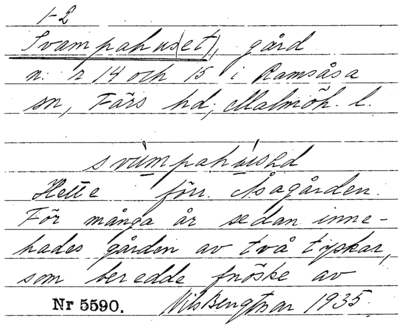 1-2
Svampahus(et), gård
n:r 14 och 15 i Ramsåsa
sn, Färs hd, Malmöh. l.
svùmpahùsəd
Hette förr Åsagården.
För många år sedan inne-
hades gården av två tyskar,
som beredde fnöske av
Nr 5590. Nils Bengtsson 1935.